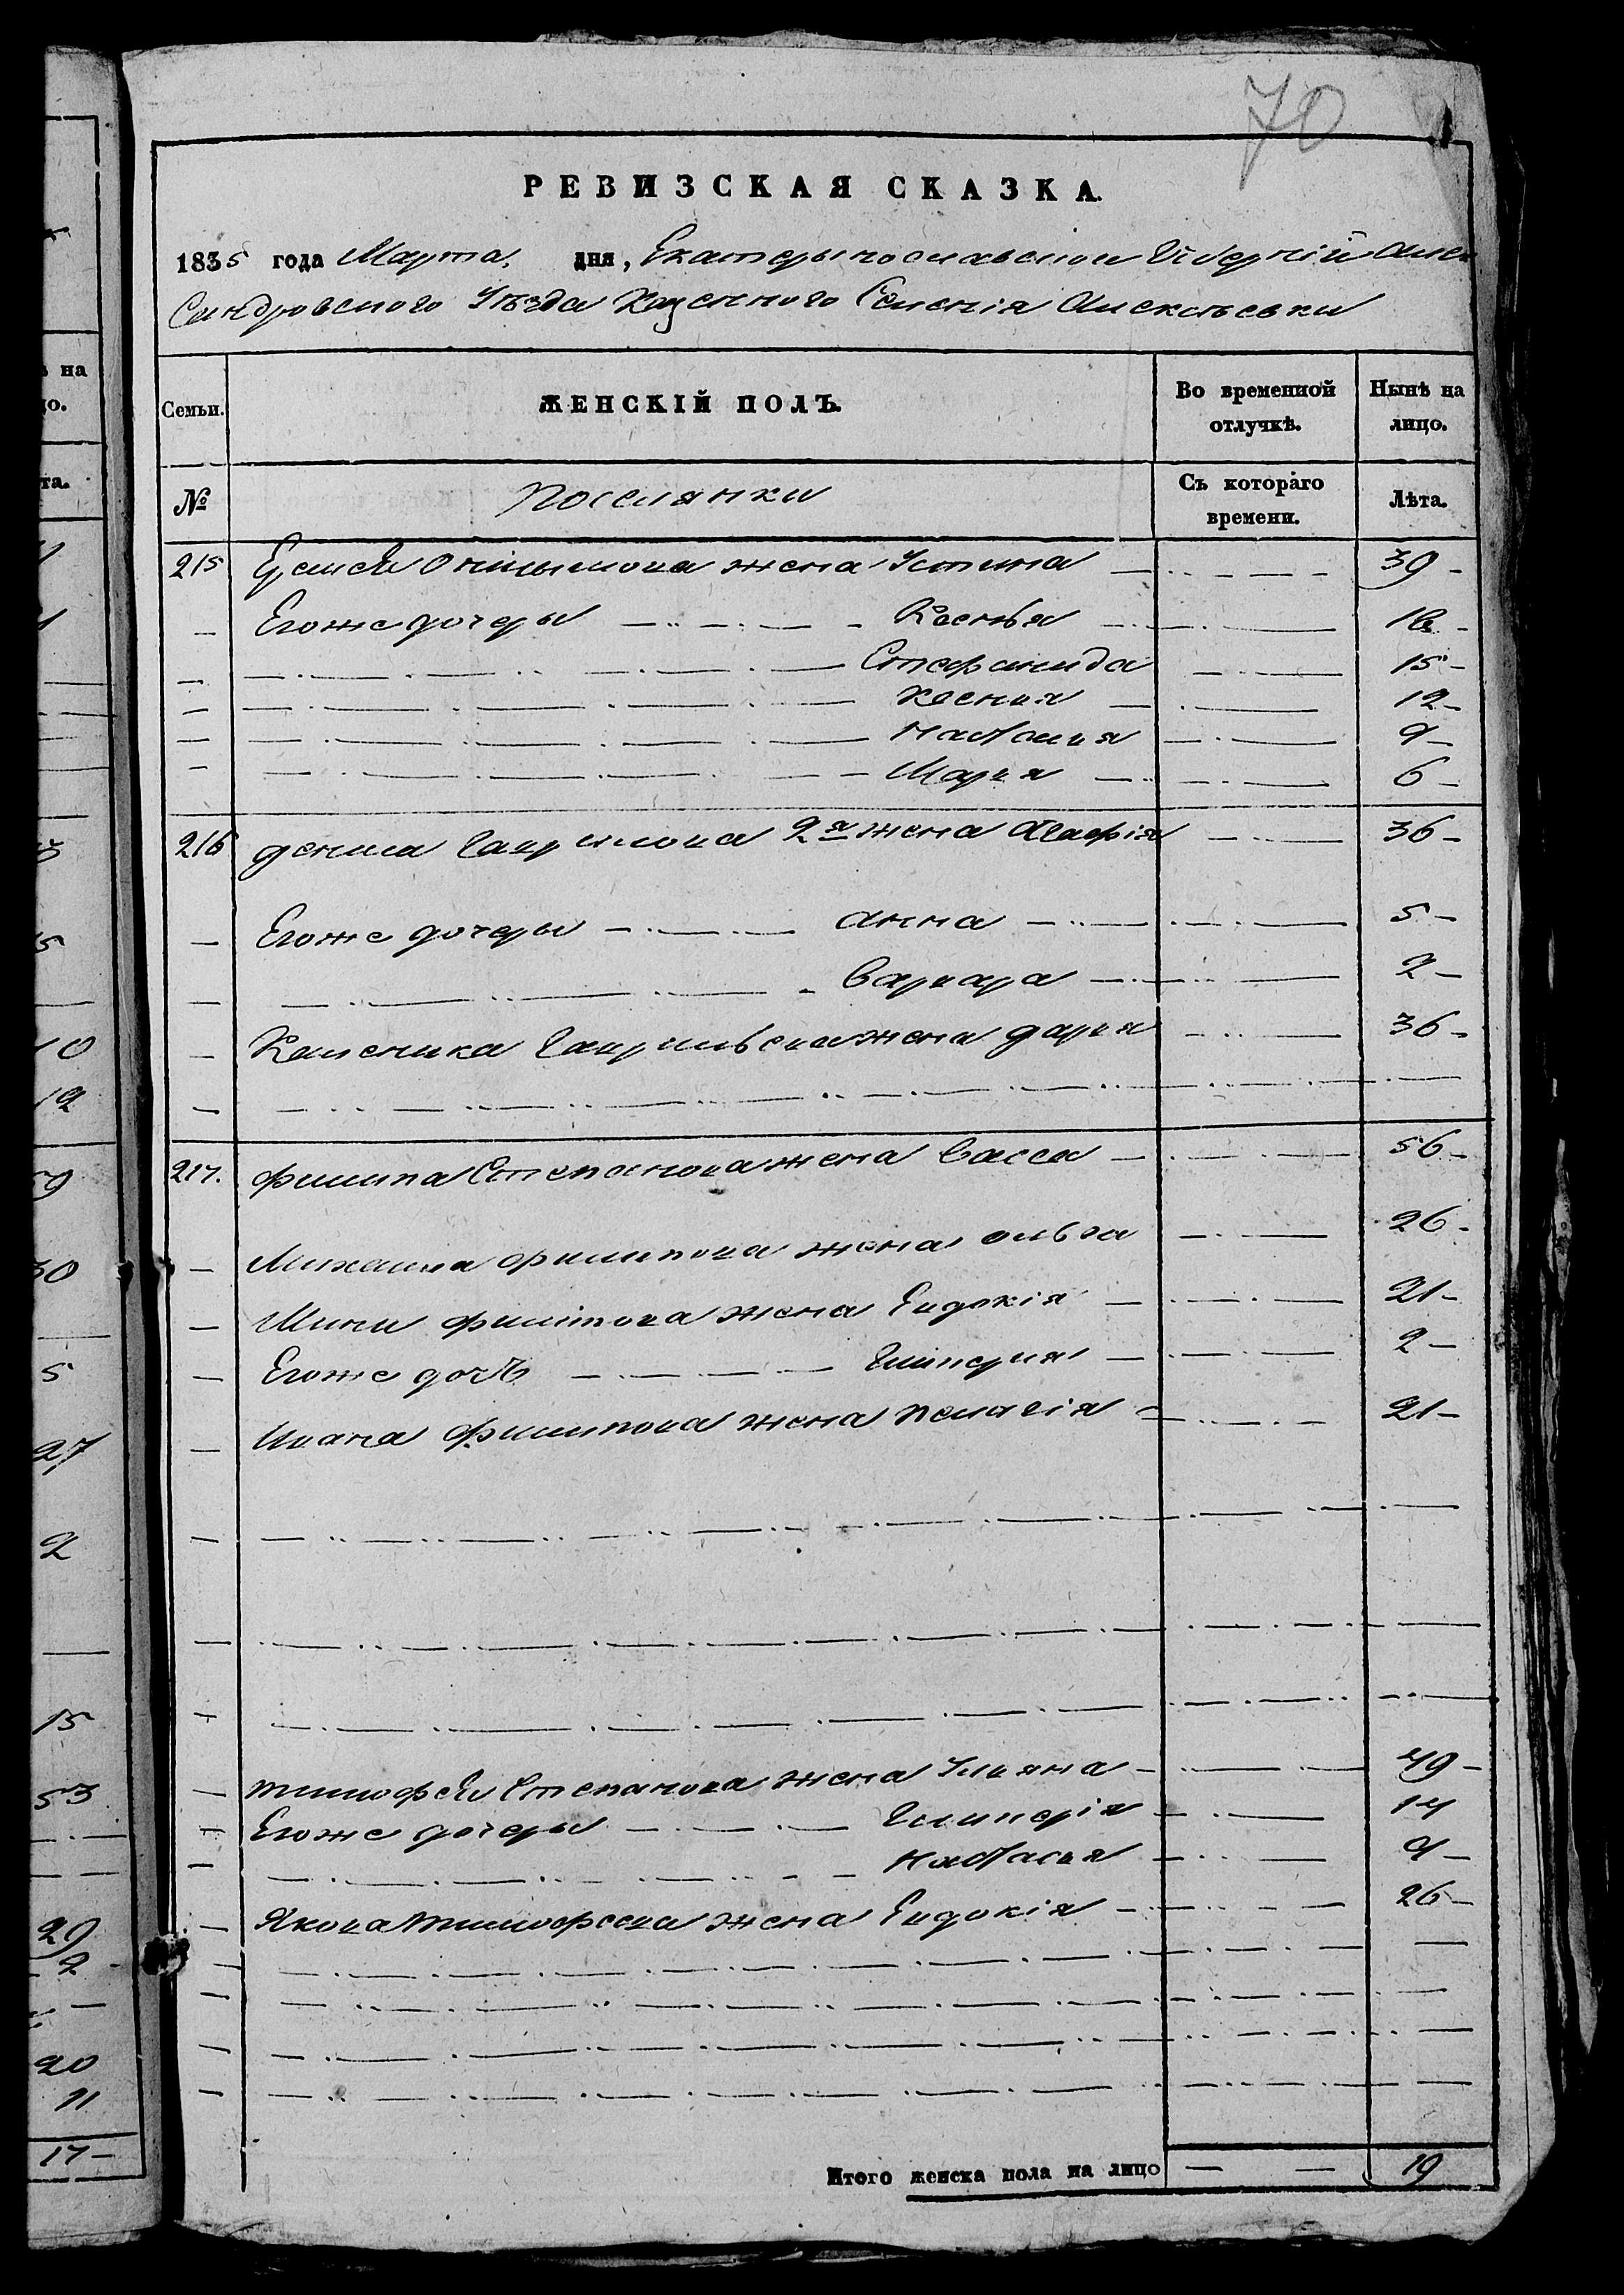 70
РЕВИЗСКАЯ СКАЗКА.
1835 года Марта, дня, Екатерынославской Губерніи Алек
Сандровского Уѣзда Казенного Селенія Алексѣевки
Семьи. ЖЕНСКІЙ ПОЛЪ. Во временной отлучкѣ. Нынѣ на лицо.
№ Поселянки Съ котораго времени. Лѣта.
215 жена Устина 39
Егоже дочеры
Стефанида 15
Ксения 12
Настасия 9
Мария 6
216 дениса Гаврилова 2я жена Агафія 36
Егоже дочеры Анна 5
Варвара 2
Каленика Гаврильева жена дария 36
217. филипа Степанова жена Васса 56
Михаила филипова жена ольга 26
Мини филипова жена Евдокія 21
Егоже дочь Гликерия 2
Ивана Филипова жена пелагія 21
тимофея Степанова жена Улияна 49
Егоже дочеры Гликерія 14
настасия 9
Якова тимофеева жена Евдокія 26
Итого женска пола на лицо 19
на
цо.
та.
5
10
12
30
5
27
2
15
53
29
2
20
11
17